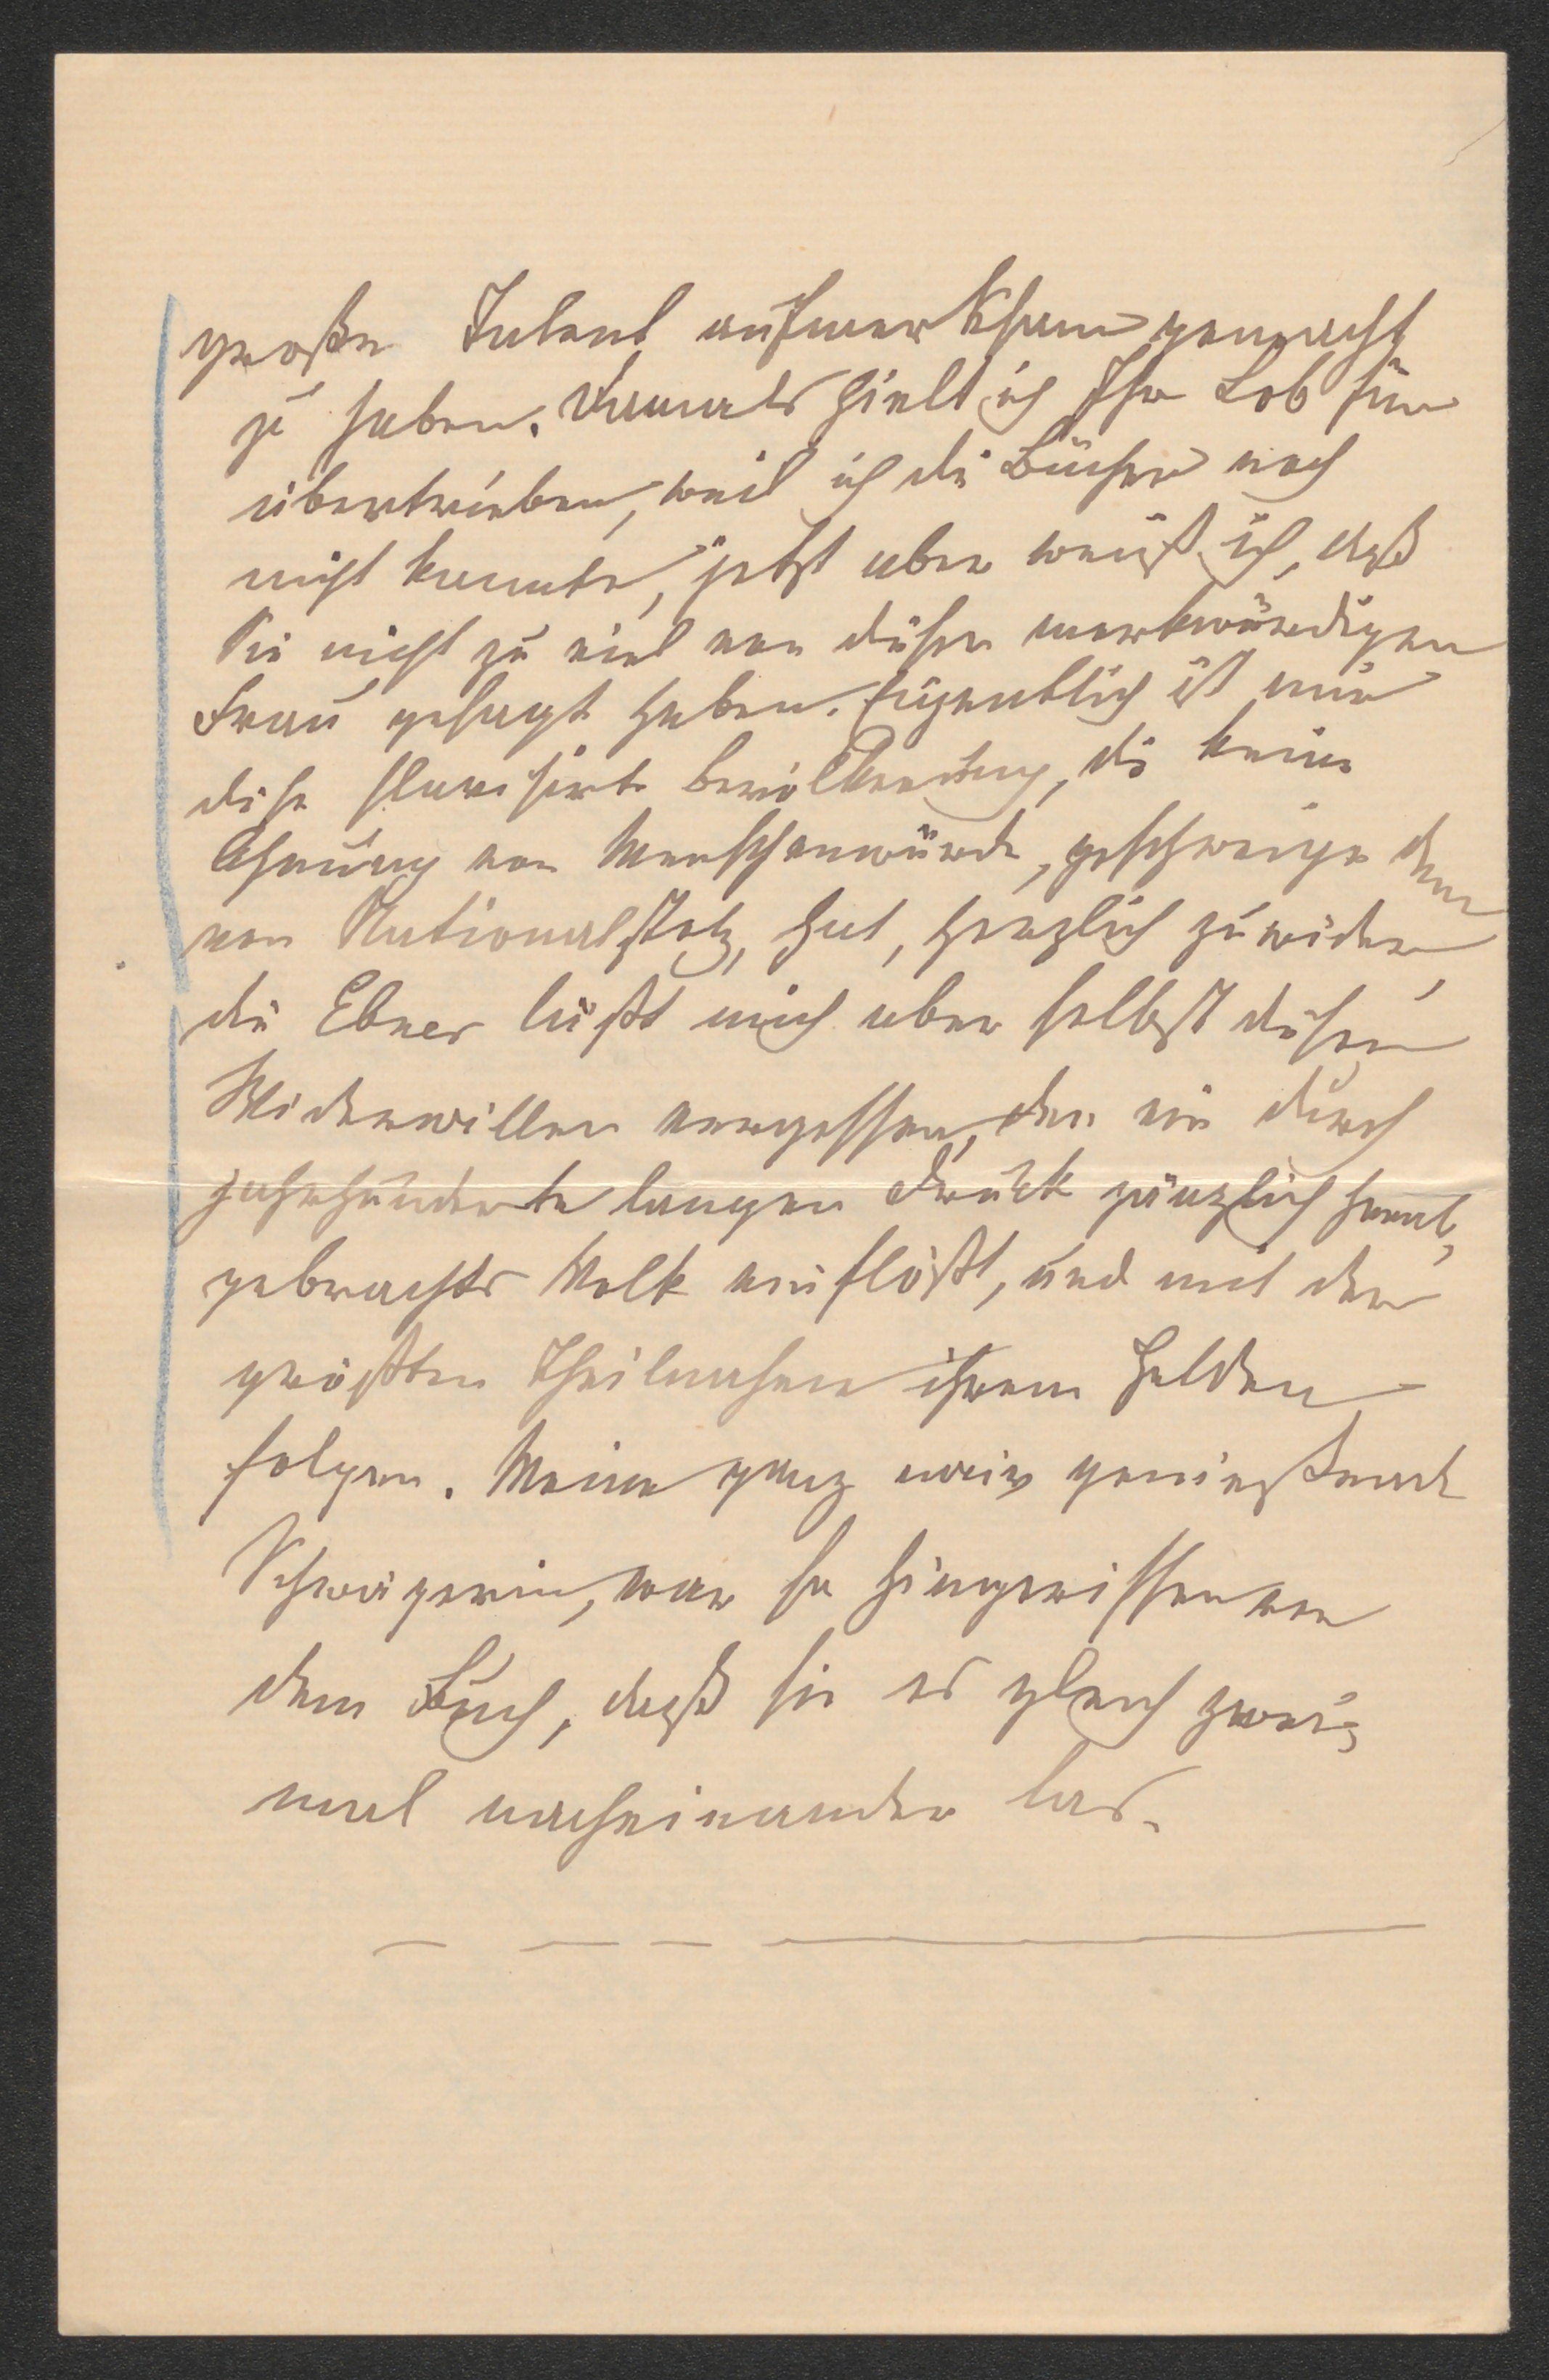 große Talent aufmerksam gemacht
zu haben. Damals hielt ich Ihr Lob für
übertrieben, weil ich die Bücher noch
nicht kannte, jetzt aber weiß ich, daß
Sie nicht zu viel von dieser merkwürdigen
Frau gesagt haben. Eigentlich ist mir
diese slavisirte Bevölkerung, die keine
Ahnung von Menschenwürde, geschweige denn
von Nationalstolz, hat, herzlich zuwider,
die Ebner läßt mich aber selbst diesen
Widerwillen vergessen, den ein durch
jahrhunderte langen Druck gänzlich herab-
gebrachtes Volk einflößt, und mit der
größten Theilnahme ihrem Helden
folgen. Meine ganz naiv genießende
Schwägerin, war so hingerissen von
dem Buch, daß sie es gleich zwei-
mal nacheinander las.